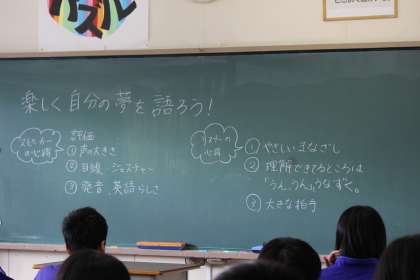 楽しく自分の夢を語ろう!
スピーカーの心得
評価
①声の大きさ
②目線、ジェスチャー
③発音、英語らしさ
リスナーの心得
①やさしいまなざし
②理解できてるところは
「うん、うん」うなずく。
③大きな拍手